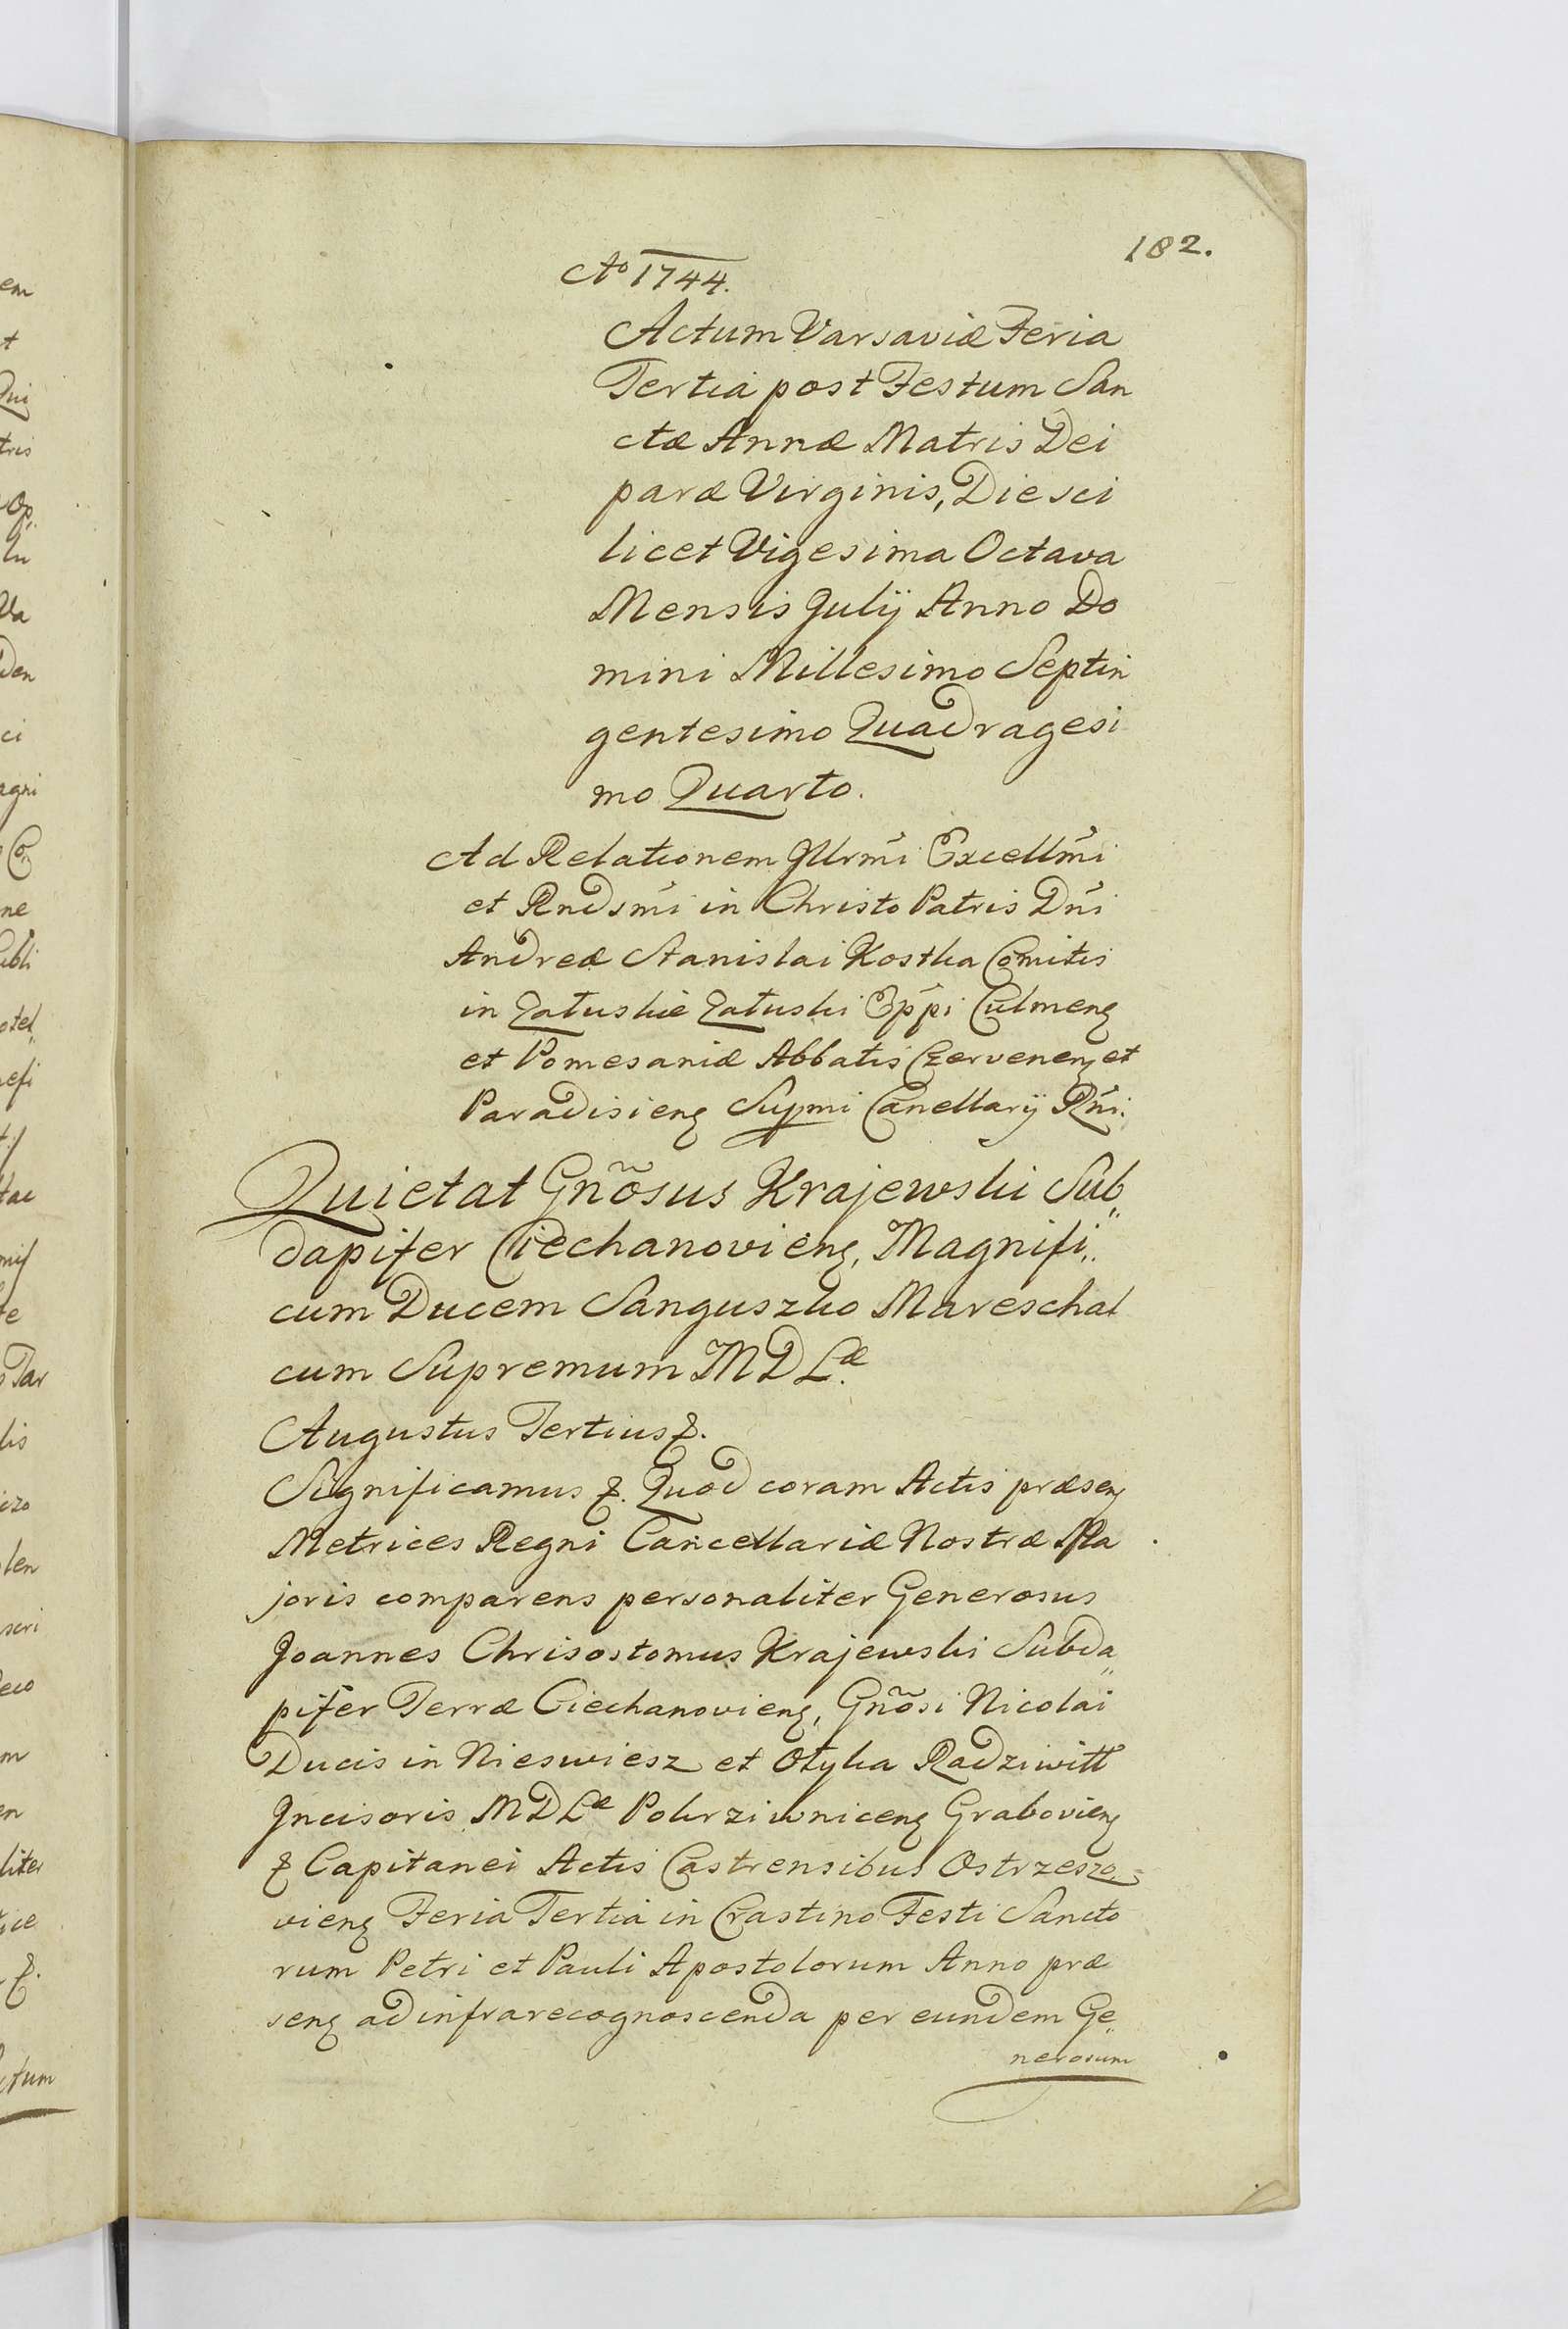 182.
Aº 1744.
Actum Varsaviæ Feria
Tertia post Festum San
ctæ Annæ Matris Dei
paræ Virginis, Die sci
licet Vigesima Octava
Mensis Julij Anno Do
mini Millesimo Septin
gentesimo Quadragesi
mo Quarto.
Ad Relationem Jllrmi Excellmi
et Rndsmi in Christo Patris Dni
Andreæ Stanislai Kostka Comitis
in Załuskie Załuski Eppi Culmenę
et Pomesaniæ Abbatis Czervenenę et
Paradisienę Supmi Cancellarij Rni.
Quietat Gnõsus Krajewski Sub„
dapifer Ciechanovienę, Magnifi„
cum Ducem Sanguszko Mareschal
cum Supremum M D Læ.
Augustus Tertius &.
Significamus &. Quod coram Actis præsenę
Metrices Regni Cancellariæ Nostræ Ma
joris comparens personaliter Generosus
Joannes Chrisostomus Krajewski Subda„
pifer Terræ Ciechanovienę, Gnõsi Nicolai
Ducis in Nieswiesz et Otyka Radziwiłł
Jncisoris M D Læ Pokrziwnicenę Grabovienę
& Capitanei Actis Castrensibus Ostrzeszo=
vienę Feria Tertia in Crastino Festi Sancto
rum Petri et Pauli Apostolorum Anno præ
senę ad infrarecognoscenda per eundem Ge„
nerosum